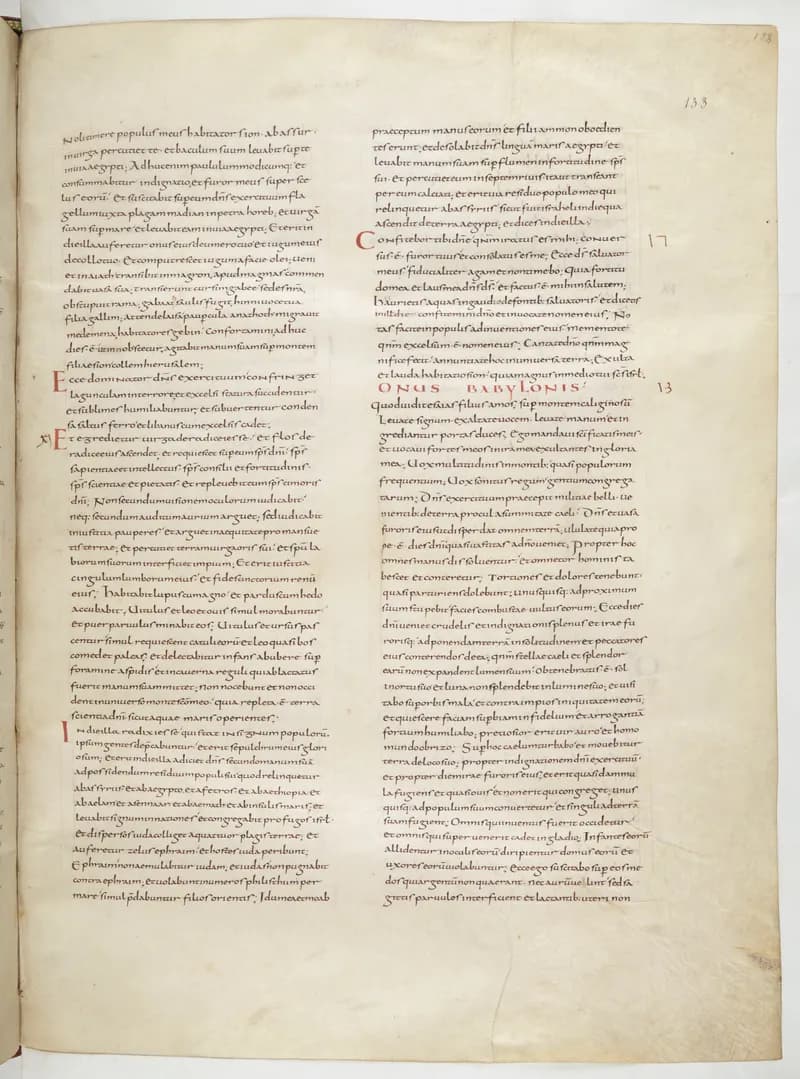 133
133
Noli timere populus meus habitator sion · ab assur ·
in uirga percutiet te · et baculum suum leuabit sup te
in uia aegypti; Adhuc enim paululum modicumq: et
consummabitur indignatio, et furor meus super sce
lus eorū; Et suscitabit sup eum dn̄s exercituum fla
gellum iuxta plagam madian in petra horeb; et uirgā
suam sup mare et leuabit eam in uia aegypti; Et erit in
die illa auferetur onus eius de umero tuo et iugum eius
de collo tuo · Et computrescet iugum a facie olei; ueni
et in aiath transibit in magron, apud magmas commen
dabit uasa sua; transierunt cursim gabee sedes nr̄a,
obstupuit rama, gabaa saulis fugit, hinni uoce tua
filia gallim; Attende laisa paupcula anathoth migrauit
medemena, habitatores gebin · Confortamini adhuc
dies ē · ut in nobe stetur; agitabit manum suam sup montem
filiae sion collem hierusalem;
Ecce dominator dn̄s exercituum confringet
lagunculam in terrore, et excelsi statura succidentur ·
et sublimes humiliabuntur; et subuertentur conden
sa saltus ferro et libanus cum excelsis cadet;
XI Et egredietur uirga de radice iesse · et flos de
radice eius ascendet, et requiescet sup eum sp̄s dn̄i · sp̄s
sapientiae et intellectus, sp̄s consilii et fortitudinis ·
sp̄s scientiae et pietatis · et repleuit eum sp̄s timoris
dn̄i; Non secundum uisionem oculorum iudicabit ·
neq: secundum auditum aurium arguet; sed iudicabit
in iustitia pauperes · et arguet in aequitate pro mansue
tis terrae; et percutiet terram uirga oris sui · et sp̄u la
biorum suorum interficiet impium; Et erit iustitia
cingulum lumborum eius · et fides cinctorium renū
eius; habitabit lupus cum agno · et pardus cum hedo
accubabit, Uitulus et leo et ouis simul morabuntur ·
et puer paruulus minabit eos; Uitulus et ursus pas
centur simul requiescent catuli eorū et leo quasi bos
comedet paleas; et delectabitur infans ab ubere sup
foramine aspidis et in cauerna reguli qui ablactatus
fuerit manum suam mittet; non nocebunt et non occi
dent in uniuerso monte sc̄o meo · quia repleta ē terra
scientia dn̄i sicut aquae maris operientes;
In die illa radix iesse qui stat in signum populorū,
ipsum gentes depcabuntur · et erit sepulchrum eius glori
osum; et erit in die illa adiciet dn̄s secundo manum suā
ad possidendum residuum populi sui quod relinquetur
ab assyriis · et ab aegypto, et a fetros · et ab aethiopia · et
ab aelam, et a sennaar · et ab aemath · et ab insulis maris, et
leuabit signum in nationes · et congregabit profugos isr̄l ·
et dispersos iuda colliget a quattuor plagis terrae; et
auferetur zelus ephraim · et hostes iuda peribunt;
Ephraim non aemulabitur iudam, et iudas non pugnabit
contra ephraim; et uolabunt in umeros philisthim per
mare simul p̄dabuntur filios orientis; Idumea et moab
praeceptum manus eorum et filii ammon oboedien
tes erunt; et desolabit dn̄s linguā maris aegypti · et
leuabit manum suam sup flumen in fortitudine sp̄s
sui · et percutiet eum in septem riuis ita ut transeant
per eum calciati; et erit uia residuo populo meo qui
relinquetur ab assyriis sicut fuit isrl̄ in die qua
ascendit de terra aegypti, et dices in die illa;
Confitebor tibi dn̄e qnm iratus es mihi; conuer XII
sus ē · furor tuus et consolatus es me; Ecce ds̄ saluator
meus fiducialiter agam et non timebo; Quia fortitu
do mea et laus mea dn̄s ds̄; et factus ē mihi in salutem;
haurietis aquas in gaudio de fontib: saluatoris · et dicetis
in illa die · confitemini dn̄o et inuocate nomen eius; No
tas facite in populis adinuentiones eius mementote
qnm excelsum ē nomen eius; Cantate dn̄o qnm mag
nifice fecit · annuntiate hoc in uniuersa terra; Exulta
et lauda habitatio sion · quia magnus in medio tui sc̄s isrl̄;
ONUS BABYLONIS · 13
Quod uidit esaias filius amos, sup montem caliginosū
Leuate signum · exaltate uocem · leuate manum et in
grediantur portas duces; Ego mandaui sc̄ificatis meis ·
et uocaui fortes meos in ira mea exultantes in gloria
mea; Uox multitudinis in montib: quasi populorum
frequentium; Uox sonitus regum gentium congrega
tarum; Dn̄s exercituum praecepit militiae belli · ue
nientib: de terra procul a summitate caeli · Dn̄s et uasa
furoris eius ut disperdat omnem terrā; ululate quia pro
pe · ē · dies dn̄i quasi uastitas a dn̄o ueniet; Propter hoc
omnes manus dissoluentur · et omne cor hominis ta
bescet et conteretur; Tortiones et dolores tenebunt ·
quasi parturiens dolebunt; unusquisq: ad proximum
suum stupebit facies combustae uultus eorum; Ecce dies
dn̄i ueniet crudelis et indignationis plenus · et irae fu
rorisq: ad ponendam terrā in solitudinem et peccatores
eius conterendos de ea; qnm stellae caeli et splendor
earū non expandent lumen suum · Obtenebratus ē · sol
in ortu suo et luna non splendebit in lumine suo; et uisi
tabo sup orbis mala et contra impios iniquitatem eorū;
et quiescere faciam supbiam infidelium et arrogantiā
fortium humiliabo; pretiosior erit uir auro et homo
mundo obrizo; Sup hoc caelum turbabo · et mouebitur
terra de loco suo; propter indignationem dn̄i exercituū ·
et propter diem irae furoris eius; et erit quasi dammu
la fugiens et quasi ouis · et non erit qui congreget; unus
quisq: ad populum suum conuertetur et singuli ad terrā
suam fugient; Omnis qui inuentus fuerit occidetur ·
et omnis qui superuenerit cadet in gladio; Infantes eorū
allidentur in oculis eorū diripientur domus eorū et
uxores eorū uiolabuntur; Ecce ego suscitabo sup eos me
dos qui argentū non quaerant · nec aurū uelint sed sa
gittis paruulos interficient et lactantib: uteri non